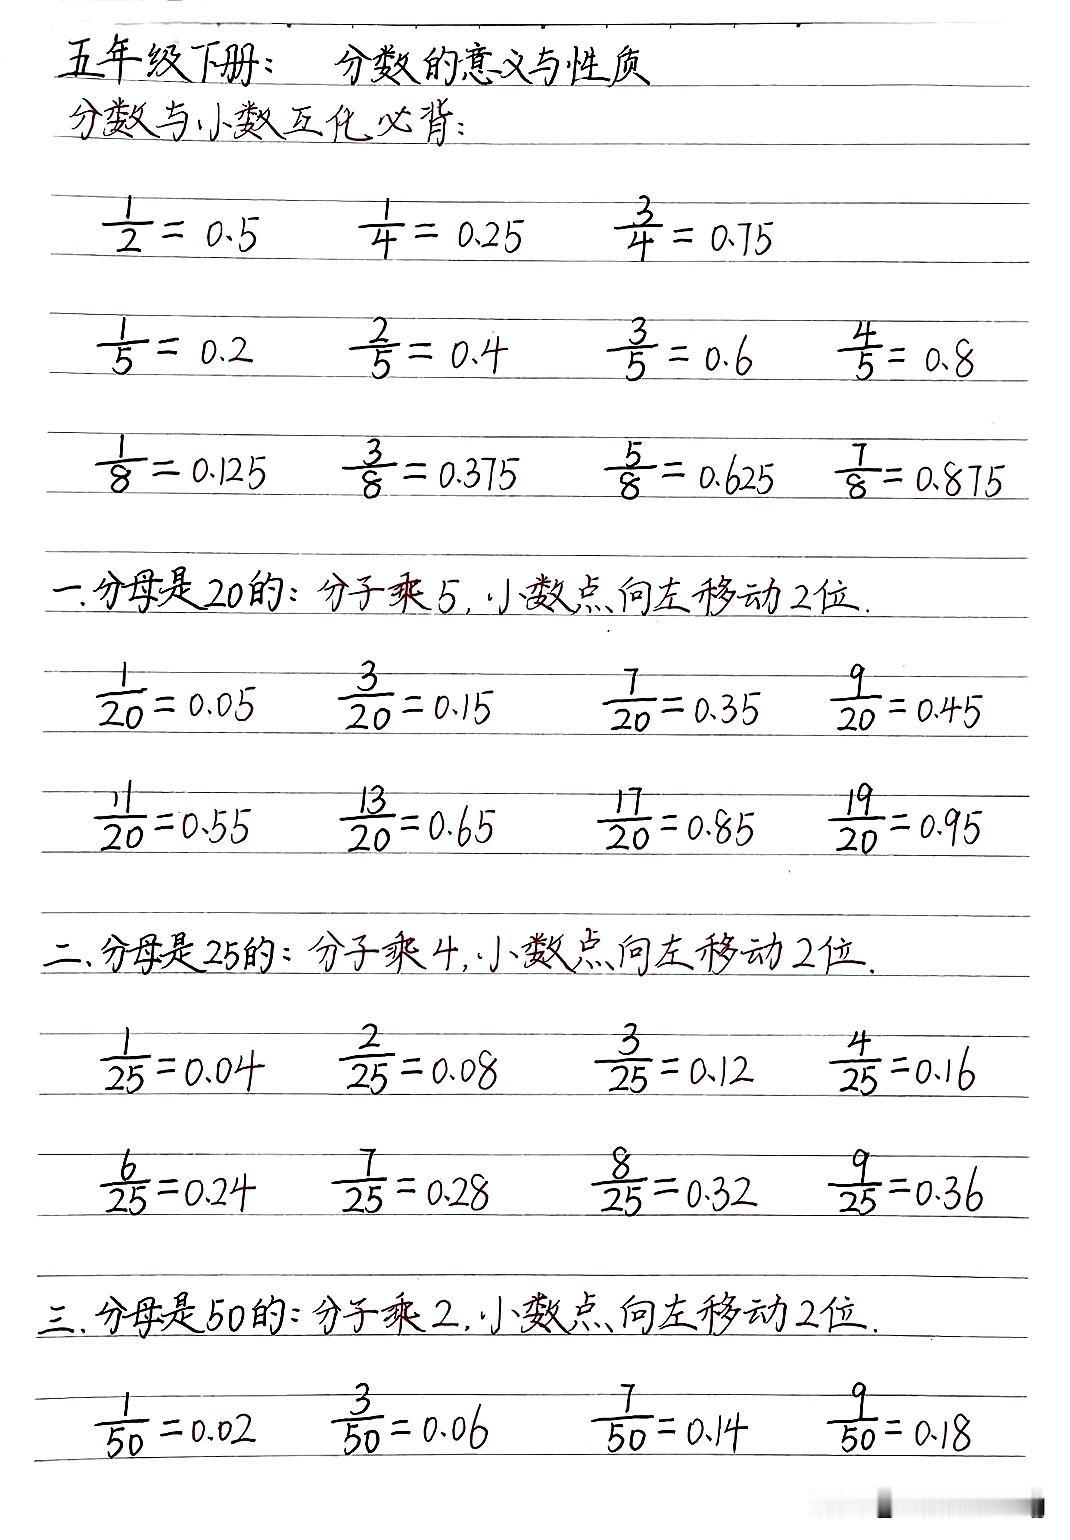 五年级下册: 分数的意义与性质
分数与小数互化必背:
1/2 = 0.5 1/4 = 0.25 3/4 = 0.75
1/5 = 0.2 2/5 = 0.4 3/5 = 0.6 4/5 = 0.8
1/8 = 0.125 3/8 = 0.375 5/8 = 0.625 7/8 = 0.875
一.分母是20的: 分子乘5, 小数点向左移动2位.
1/20 = 0.05 3/20 = 0.15 7/20 = 0.35 9/20 = 0.45
11/20 = 0.55 13/20 = 0.65 17/20 = 0.85 19/20 = 0.95
二、分母是25的: 分子乘4, 小数点向左移动2位.
1/25 = 0.04 2/25 = 0.08 3/25 = 0.12 4/25 = 0.16
6/25 = 0.24 7/25 = 0.28 8/25 = 0.32 9/25 = 0.36
三.分母是50的: 分子乘2, 小数点向左移动2位.
1/50 = 0.02 3/50 = 0.06 7/50 = 0.14 9/50 = 0.18